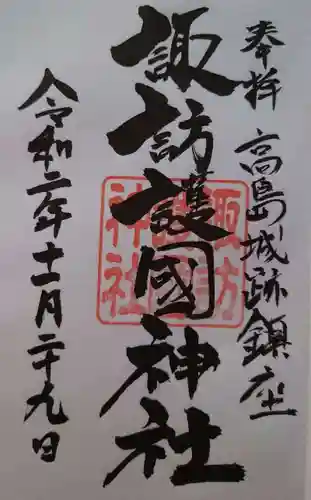 奉拝 高島城跡鎮座
諏訪護國神社
令和二年十一月二十九日
諏訪
護國
神社